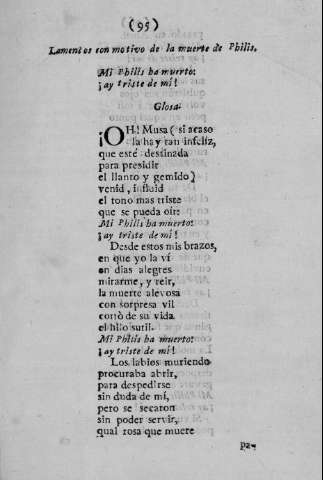 (95)
Lamentos con motivo de la muerte de Philis.
Mi Philis ha muerto:
¡ay triste de mí!
Glosa.
¡OH! Musa (si acaso
la hay tan infeliz,
que esté destinada
para presidir
el llanto y gemido)
venid, influid
el tono mas triste
que se pueda oir:
Mi Philis ha muerto:
¡ay triste de mí!
Desde estos mis brazos,
en que yo la ví
en dias alegres
mirarme, y reir,
la muerte alevosa
con sorpresa vil
cortò de su vida
el hilo sutil.
Mi Philis ha muerto:
¡ay triste de mí!
Los labios muriendo
procuraba abrir,
para despedirse
sin duda de mí,
pero se secaron
sin poder servir,
qual rosa que muere
pa-